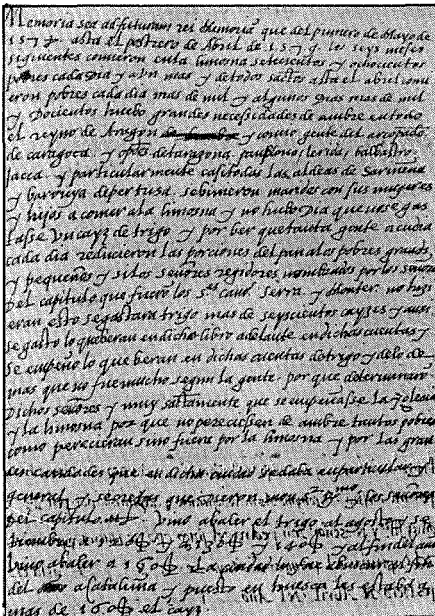 Memoria sea ad futuram rei memoria que del primero de Mayo de
asta el postrero de Abril de 1579 los seys meses
siguientes comieron en la limosna setecientos y ochocientos
pobres cada dia y aun mas y de todos sactos asta el abril comi
eron pobres cada dia mas de mil y algunos dias mas de mil
y Docientos huebo grandes necesidades de ambre en todo
el reyno de Aragon y comio gente del arcobpado
de caragoca y de taragona pamplona lerida balbastro
Jacca y particularmente casi todas las aldeas de Sariñena
y de pertusa se binieron maridos con sus mujeres
y hijos a comer a la limosna y no hubo Dia que no se gas
tasse un cayz de trigo y por ber que tanta gente acudia
cada dia reducieron las porciones del pan a los pobres grandes
y pequeños y si los señores regidores nombrados por los señores
Del capitulo que fueron los Serra y Monter no hizi
eran esto se gastara trigo mas de seyscientos cayzes y assi
se gasto lo que beran en dicho libro adelante en dichas cuentas y
se empeño lo que beran en dichas cuentas de trigo y de lo de
mas que no fue mucho segun la gente por que determinaron
Dichos señores y muy santamente que se empeñasse la Iglesia
y la limosna por que no pereciessen de ambre tantos pobres
como perecieran sino fuere por la limosna y por las gran
des caridades que en dicha ciudad se daba en particular y
general y que dieron los señores
Del capitulo Vino a baler el trigo al agosto y se
tiembre a y al fin del año
bino a baler a 160
del a Cataluña y puesto en huesca les estaba a
mas de 160 el cayz